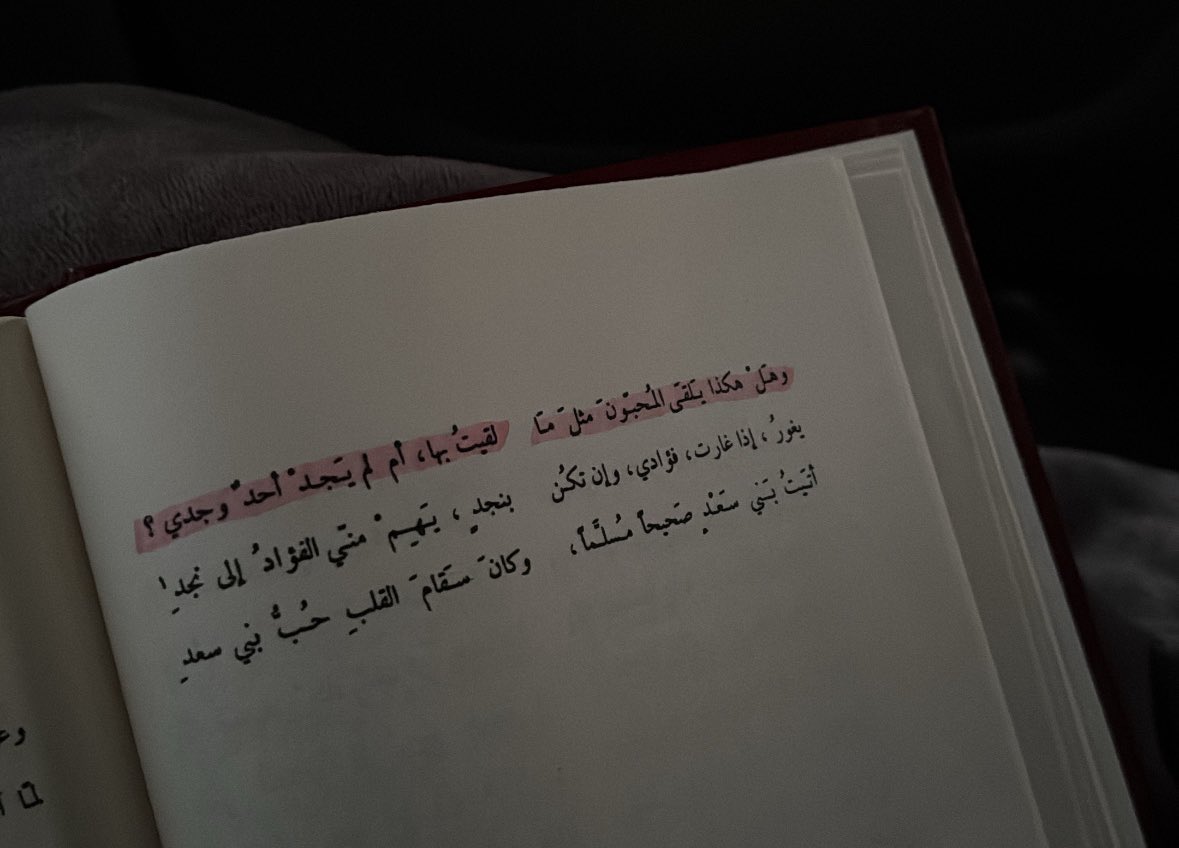 وهَلْ هكذا يَلقَى المُحبّونَ مثلَ مَا لقيتُ بها، أم لم يَجدْ أحدٌ وجدي ؟
يغورُ، إذا غارت، فؤادي، وإن تكُن بنجدٍ ، يَهيمْ منّي الفؤادُ إلى نجدِ ١
أتَيتُ بَني سعَدٍ صَحيحاً مُسلَّماً، وكانَ سَقامَ القلبِ حُبُّ بني سعدِ